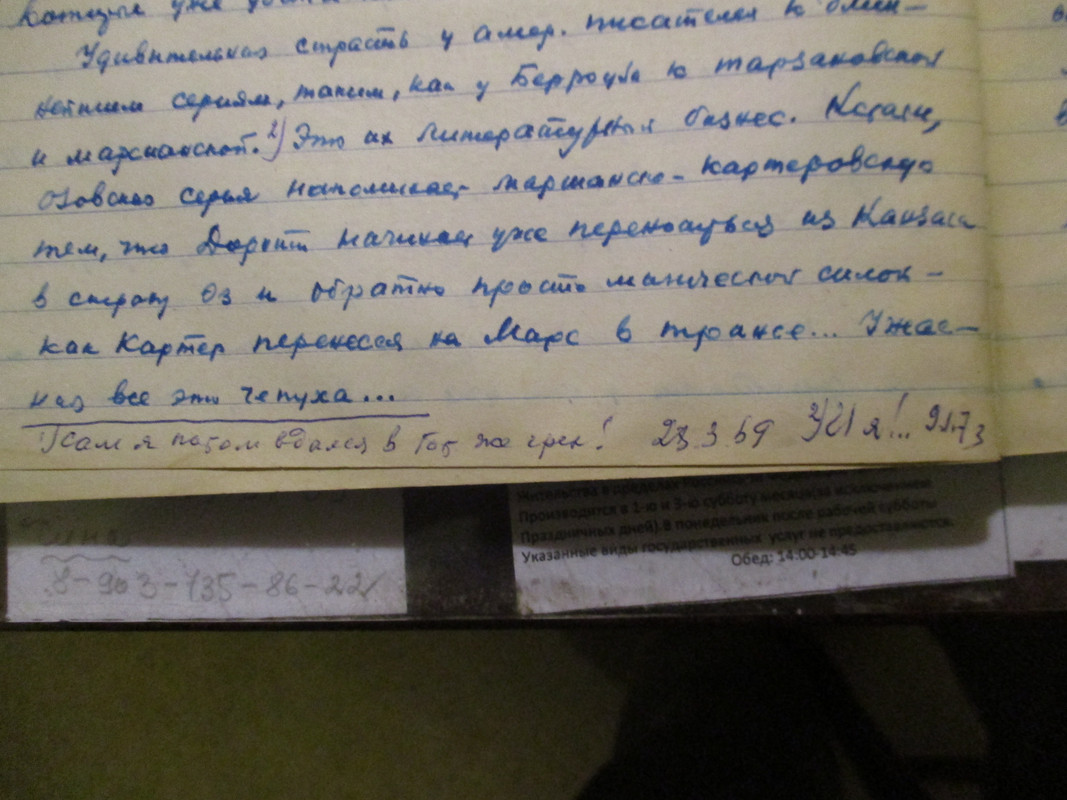 которые уже
Удивительная страсть у амер. писателей к длин-
нейшим сериям, таким, как у Берроуза к тарзановской
и марсианской.²⁾ Это их литературный бизнес. Кстати,
озовская серия напоминает марсианско-картеровскую
тем, что Дороти начинает уже переноситься из Канзаса
в страну Оз и обратно просто магической силой -
как Картер перенесся на Марс в трансе... Ужас-
ная все это чепуха...
1) Сам я потом вдался в тот же грех! 23 3 69 2) И я!..
Жительства в пределах
Производится в 1-ю и 3-ю субботу месяца(за исключением
Праздничных дней).В понедельник после рабочей субботы
Указанные виды государственных услуг не предоставляются.
Обед: 14:00-14:45
8-903-135-86-22